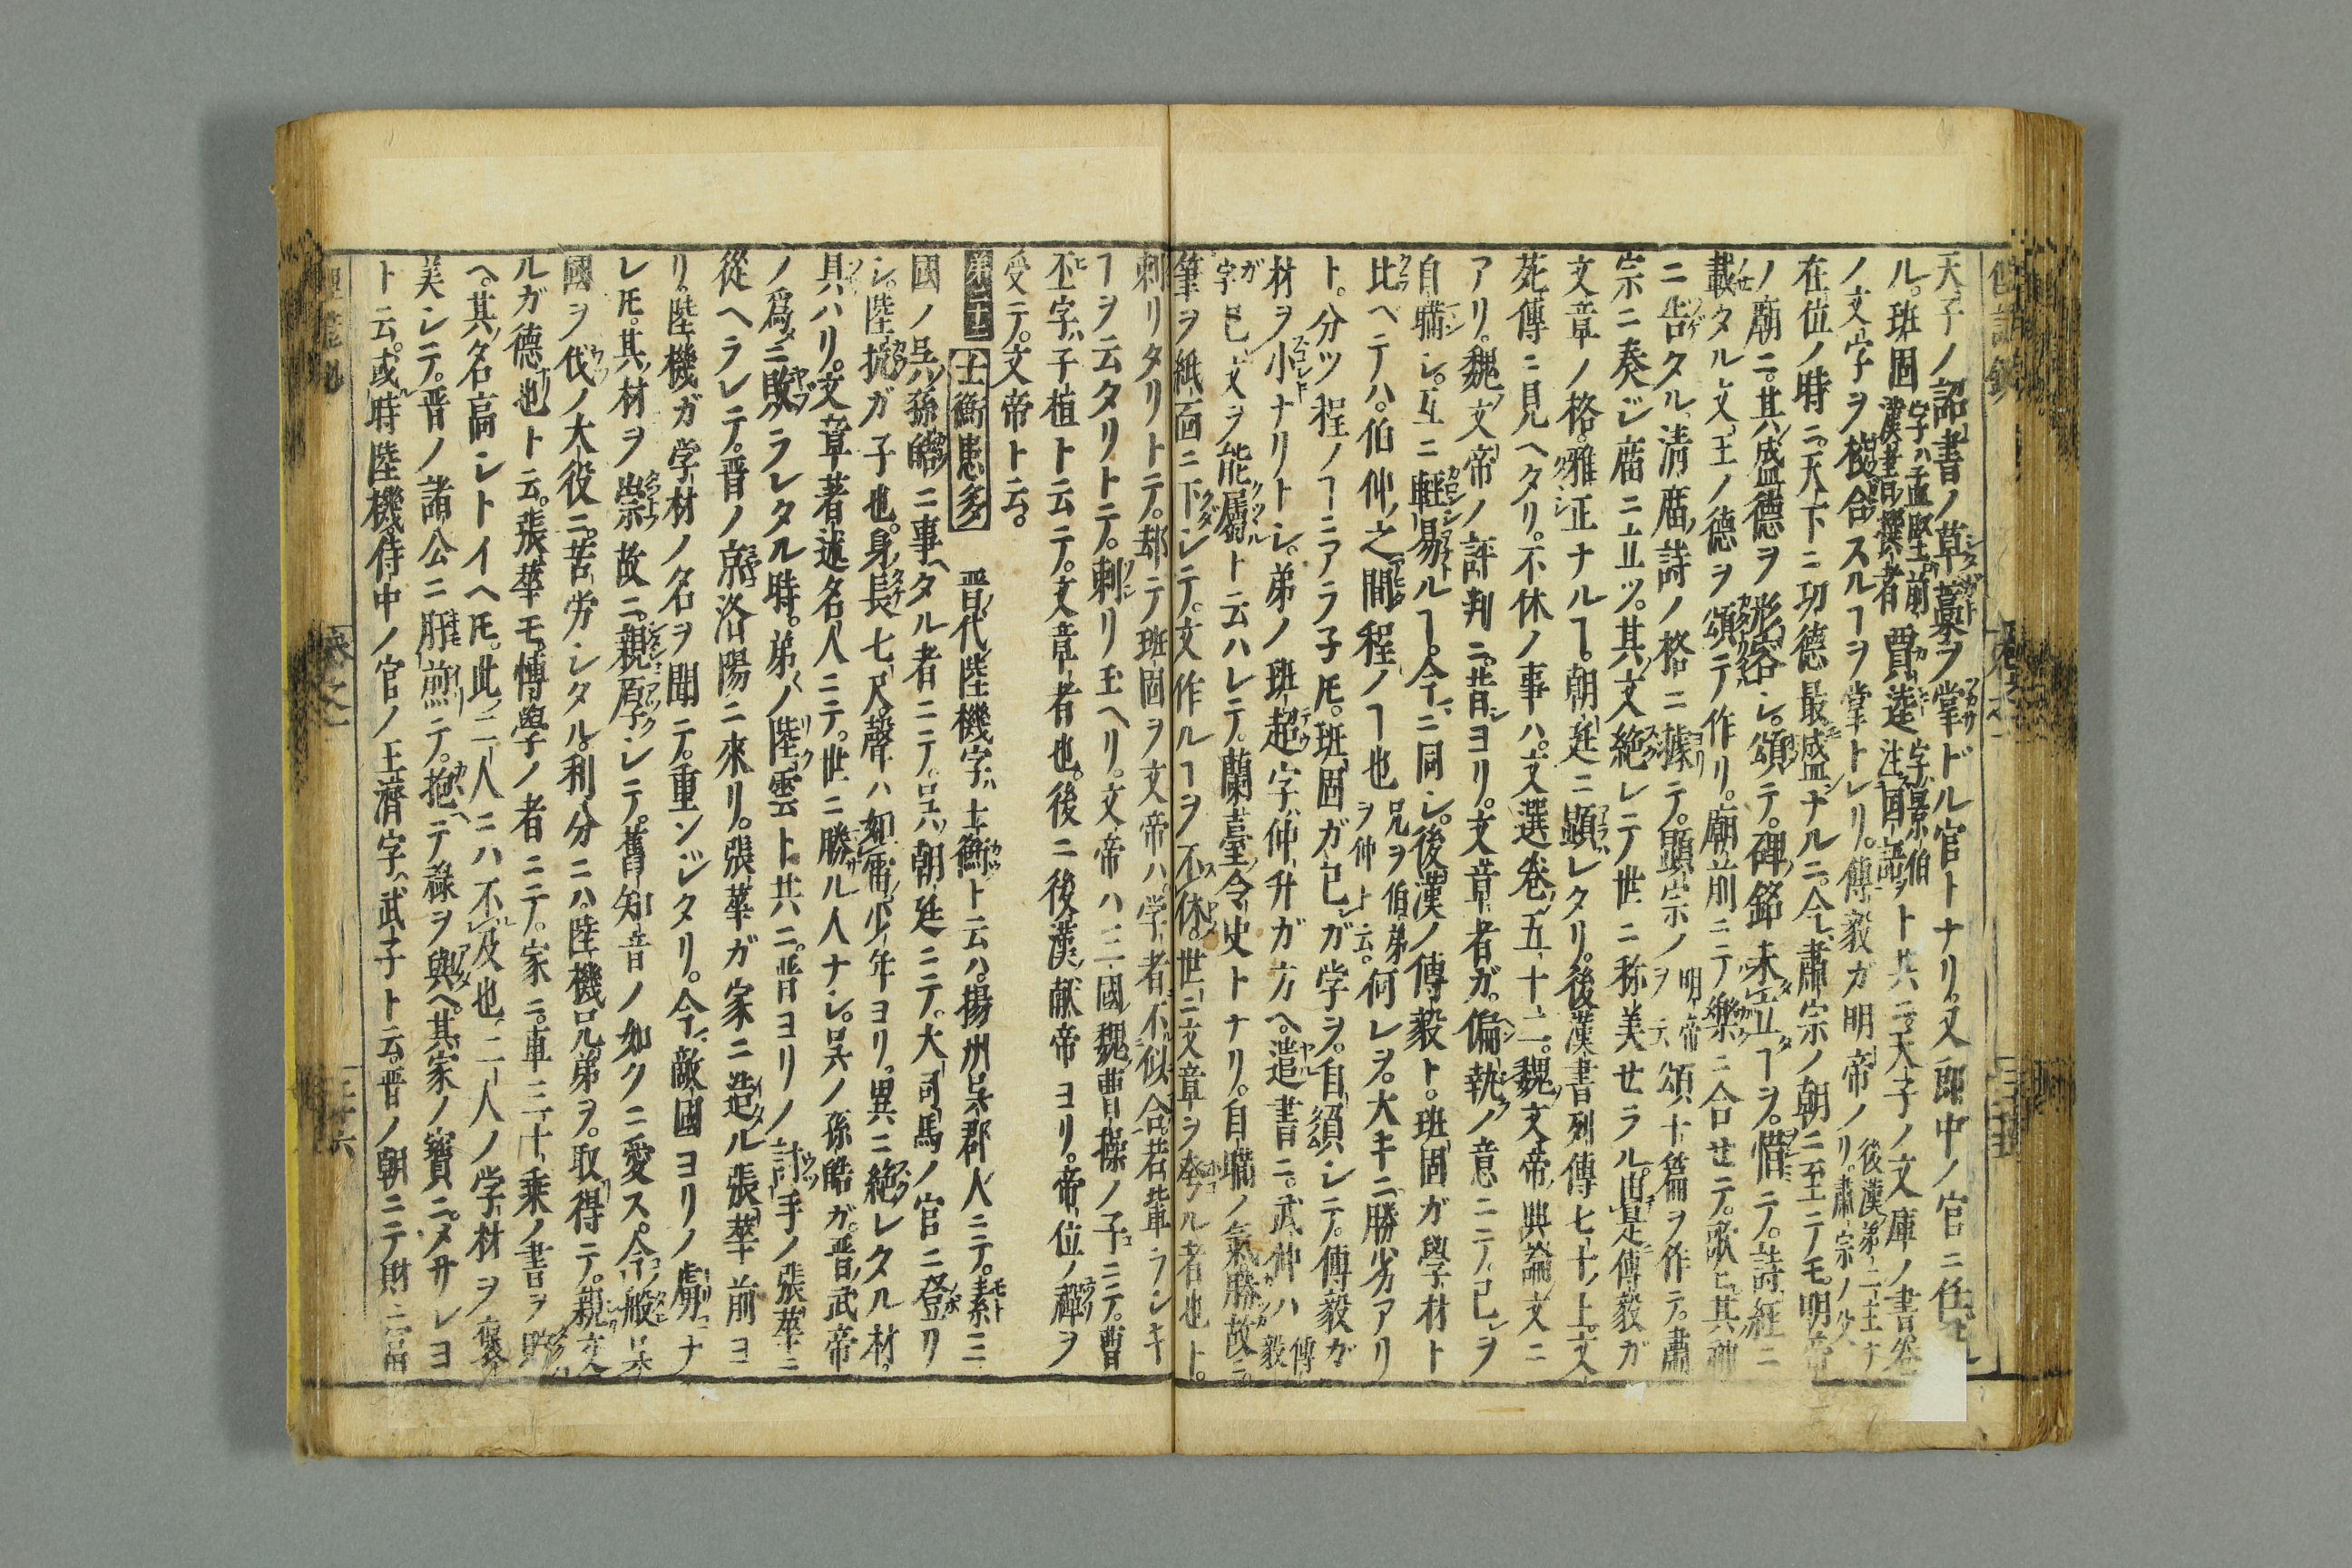 天子ノ詔書ノ草藁ヲ掌ドル官トナリ。又郎中ノ官ニ任
ル。班固 字ハ孟堅前漢書撰者 賈逵 字景伯注國語 ト共ニ。天子ノ文庫ノ書
ノ文字ヲ校合スルヿヲ掌トレリ。傅毅ガ明帝ノ 後漢第二主ナリ。肅宗ノ父
在位ノ時ニ。天下ニ功德最盛ナルニ。今肅宗ノ朝ニ至ニテモ。明帝
ノ廟ニ。其盛德ヲ形容シ。頌テ。碑銘未立ヿヲ。惜テ。詩經ニ
載タル文王ノ德ヲ頌テ作リ。廟前ニテ樂ニ合セテ。歌ヒ其神
ニ告タル清庿詩ノ格ニ據テ。顯宗ノ 明帝ヲ云 頌十篇ヲ作テ。肅
宗ニ奏ジ庿ニ立ツ。其文絶レテ世ニ称美セラル。由是傅毅ガ
文章ノ格。雅正ナルヿ。朝廷ニ顕レタリ。後漢書列傳七十上。文
苑傳ニ見ヘタリ。不休ノ事ハ。文選卷五十二。魏文帝典論文ニ
アリ。魏文帝ノ評判ニ。昔ヨリ。文章者ガ。偏執ノ意ニテ。己ヲ
自矚シ。互ニ輕易ルヿ。今ニ同シ。後漢ノ傅毅ト。班固ガ學材ト
比ベテハ。伯仲之間程ノヿ也 兄ヲ伯弟ヲ仲ト云。 何レヲ。大キニ勝劣アリ
ト。分ツ程ノヿニアラ子𪜈。班固ガ已ガ学ヲ。自須シテ。傅毅ガ
材ヲ小ナリトシ。弟ノ班超字仲升ガ方ヘ。遣書ニ。武仲ハ 傅毅
ガ字 已文ヲ能屬ト云ハレテ。蘭臺令史トナリ。自矚ノ氣勝故ニ。
筆ヲ紙面ニ下シテ。文作ルヿヲ不休。世ニ文章ヲ奢ル者也ト。
刺リタリトテ。却テ班固ヲ文帝ハ学者不似合若輩ラシキ
ヿヲ云タリトテ。刺リ玉ヘリ。文帝ハ三國魏曹操ノ子ニテ。曹
丕字ハ子植ト云テ。文章者也。後ニ後漢獻帝ヨリ。帝位ノ禪ヲ
受テ。文帝ト云。
第二十三 士衡患多 晋代陸機字ハ士衡ト云ハ。揚州呉郡人ニテ。素ト三
國ノ呉孫皓ニ事ヘタル者ニテ。呉ノ朝廷ニテ。大司馬ノ官ニ登リ
シ。陸抗ガ子也。身長七尺。聲ハ如雷。少年ヨリ。異ニ絶レタル材。
具ハリ。文章著述名人ニテ。世ニ勝ル人ナシ。呉ノ孫皓ガ。晋武帝
ノ爲ニ敗ラレタル時。弟ノ陸雲ト共ニ。晋ヨリノ討手ノ張華ニ
從ヘラレテ。晋ノ京洛陽ニ來リ。張華ガ家ニ造ル。張華前ヨ
リ。陸機ガ学材ノ名ヲ聞テ。重ンジタリ。今敵國ヨリノ虜ナ
レ𪜈。其材ヲ崇故ニ。親厚シテ。舊知音ノ如クニ愛ス。今般呉
國ヲ伐ノ大役ニ。苦労シタル。利分ニハ。陸機兄弟ヲ。取得テ。親交
ルガ德也ト云。張華モ。博學ノ者ニテ。家ニ。車三十乘ノ書ヲ貯
ヘ。其名高シトイヘ𪜈。此二人ニハ不及也。二人ノ学材ヲ襃
美シテ。晋ノ諸公ニ肝煎テ。抱テ祿ヲ與ヘ。其家ノ寶ニメサレヨ
ト云。或時陸機侍中ノ官ノ王濟字ハ武子ト云。晋ノ朝ニテ財ニ富